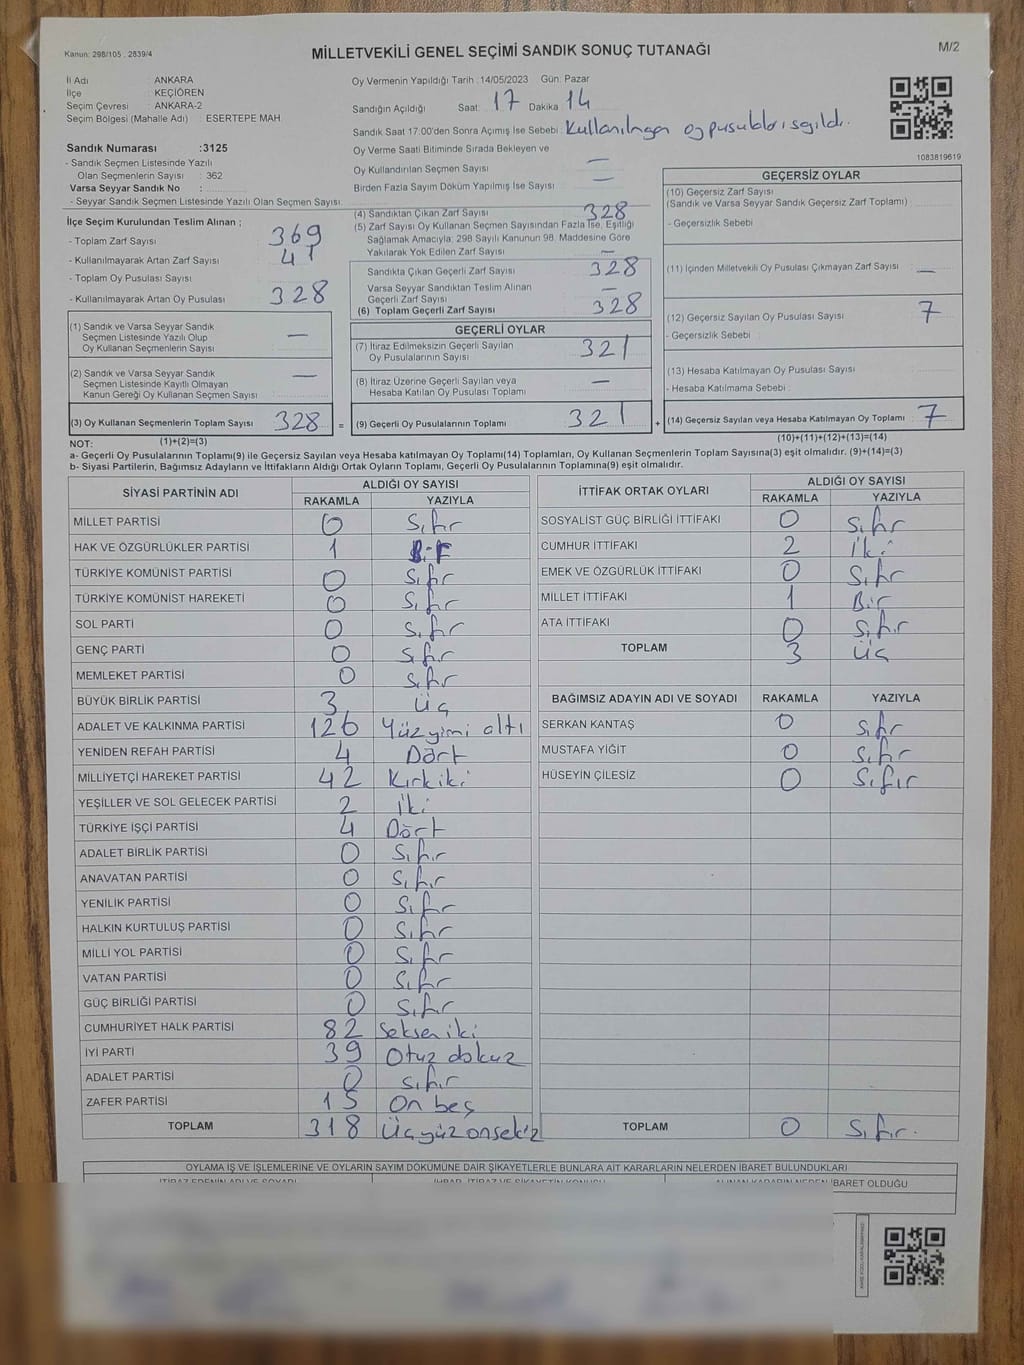 Kanun: 298/105 , 2839/4
MİLLETVEKİLİ GENEL SEÇİMİ SANDIK SONUÇ TUTANAĞI
M/2
İl Adı : ANKARA
İlçe : KEÇİÖREN
Seçim Çevresi : ANKARA-2
Seçim Bölgesi (Mahalle Adı) : ESERTEPE MAH
Oy Vermenin Yapıldığı Tarih :14/05/2023 Gün: Pazar
Sandığın Açıldığı Saat: 17 Dakika 14
Sandık Saat 17:00'den Sonra Açımış İse Sebebi : Kullanılmayan oy pusulaları sayıldı.
Oy Verme Saati Bitiminde Sırada Bekleyen ve
Oy Kullandırılan Seçmen Sayısı —
Birden Fazla Sayım Döküm Yapılmış İse Sayısı —
1083819619
Sandık Numarası :3125
- Sandık Seçmen Listesinde Yazılı
Olan Seçmenlerin Sayısı : 362
Varsa Seyyar Sandık No :
- Seyyar Sandık Seçmen Listesinde Yazılı Olan Seçmen Sayısı:
İlçe Seçim Kurulundan Teslim Alınan ;
- Toplam Zarf Sayısı 369
- Kullanılmayarak Artan Zarf Sayısı 41
- Toplam Oy Pusulası Sayısı
- Kullanılmayarak Artan Oy Pusulası 328
(1) Sandık ve Varsa Seyyar Sandık
Seçmen Listesinde Yazılı Olup
Oy Kullanan Seçmenlerin Sayısı —
(2) Sandık ve Varsa Seyyar Sandık
Seçmen Listesinde Kayıtlı Olmayan
Kanun Gereği Oy Kullanan Seçmen Sayısı —
(3) Oy Kullanan Seçmenlerin Toplam Sayısı 328 =
(1)+(2)=(3)
(4) Sandıktan Çıkan Zarf Sayısı 328
(5) Zarf Sayısı Oy Kullanan Seçmen Sayısından Fazla İse, Eşitliği
Sağlamak Amacıyla; 298 Sayılı Kanunun 98. Maddesine Göre
Yakılarak Yok Edilen Zarf Sayısı —
Sandıkta Çıkan Geçerli Zarf Sayısı 328
Varsa Seyyar Sandıktan Teslim Alınan
Geçerli Zarf Sayısı —
(6) Toplam Geçerli Zarf Sayısı 328
GEÇERLİ OYLAR
(7) İtiraz Edilmeksizin Geçerli Sayılan
Oy Pusulalarının Sayısı 321
(8) İtiraz Üzerine Geçerli Sayılan veya
Hesaba Katılan Oy Pusulası Toplamı —
(9) Geçerli Oy Pusulalarının Toplamı 321 +
GEÇERSİZ OYLAR
(10) Geçersiz Zarf Sayısı
(Sandık ve Varsa Seyyar Sandık Geçersiz Zarf Toplamı) :
- Geçersizlik Sebebi :
(11) İçinden Milletvekili Oy Pusulası Çıkmayan Zarf Sayısı —
(12) Geçersiz Sayılan Oy Pusulası Sayısı 7
- Geçersizlik Sebebi :
(13) Hesaba Katılmayan Oy Pusulası Sayısı
- Hesaba Katılmama Sebebi :
(14) Geçersiz Sayılan veya Hesaba Katılmayan Oy Toplamı 7
(10)+(11)+(12)+(13)=(14)
NOT:
a- Geçerli Oy Pusulalarının Toplamı(9) ile Geçersiz Sayılan veya Hesaba katılmayan Oy Toplamı(14) Toplamları, Oy Kullanan Seçmenlerin Toplam Sayısına(3) eşit olmalıdır. (9)+(14)=(3)
b- Siyasi Partilerin, Bağımsız Adayların ve İttifakların Aldığı Ortak Oyların Toplamı, Geçerli Oy Pusulalarının Toplamına(9) eşit olmalıdır.
SİYASİ PARTİNİN ADI ALDIĞI OY SAYISI
RAKAMLA YAZIYLA
MİLLET PARTİSİ 0 Sıfır
HAK VE ÖZGÜRLÜKLER PARTİSİ 1 Bir
TÜRKİYE KOMÜNİST PARTİSİ 0 Sıfır
TÜRKİYE KOMÜNİST HAREKETİ 0 Sıfır
SOL PARTİ 0 Sıfır
GENÇ PARTİ 0 Sıfır
MEMLEKET PARTİSİ 0 Sıfır
BÜYÜK BİRLİK PARTİSİ 3 Üç
ADALET VE KALKINMA PARTİSİ 126 Yüzyimi altı
YENİDEN REFAH PARTİSİ 4 Dört
MİLLİYETÇİ HAREKET PARTİSİ 42 Kırkiki
YEŞİLLER VE SOL GELECEK PARTİSİ 2 İki
TÜRKİYE İŞÇİ PARTİSİ 4 Dört
ADALET BİRLİK PARTİSİ 0 Sıfır
ANAVATAN PARTİSİ 0 Sıfır
YENİLİK PARTİSİ 0 Sıfır
HALKIN KURTULUŞ PARTİSİ 0 Sıfır
MİLLİ YOL PARTİSİ 0 Sıfır
VATAN PARTİSİ 0 Sıfır
GÜÇ BİRLİĞİ PARTİSİ 0 Sıfır
CUMHURİYET HALK PARTİSİ 82 Seksen iki
İYİ PARTİ 39 Otuz dokuz
ADALET PARTİSİ 0 Sıfır
ZAFER PARTİSİ 15 On beş
TOPLAM 318 Üçyüzonsekiz
İTTİFAK ORTAK OYLARI ALDIĞI OY SAYISI
RAKAMLA YAZIYLA
SOSYALİST GÜÇ BİRLİĞİ İTTİFAKI 0 Sıfır
CUMHUR İTTİFAKI 2 İki
EMEK VE ÖZGÜRLÜK İTTİFAKI 0 Sıfır
MİLLET İTTİFAKI 1 Bir
ATA İTTİFAKI 0 Sıfır
TOPLAM 3 Üç
BAĞIMSIZ ADAYIN ADI VE SOYADI RAKAMLA YAZIYLA
SERKAN KANTAŞ 0 Sıfır
MUSTAFA YİĞİT 0 Sıfır
HÜSEYİN ÇİLESİZ 0 Sıfır
TOPLAM 0 Sıfır.
OYLAMA İŞ VE İŞLEMLERİNE VE OYLARIN SAYIM DÖKÜMÜNE DAİR ŞİKAYETLERLE BUNLARA AİT KARARLARIN NELERDEN İBARET BULUNDUKLARI
İTİRAZ EDENİN ADI VE SOYADI İHBAR, İTİRAZ VE ŞİKAYETİN KONUSU ALINAN KARARIN NEDEN İBARET OLDUĞU